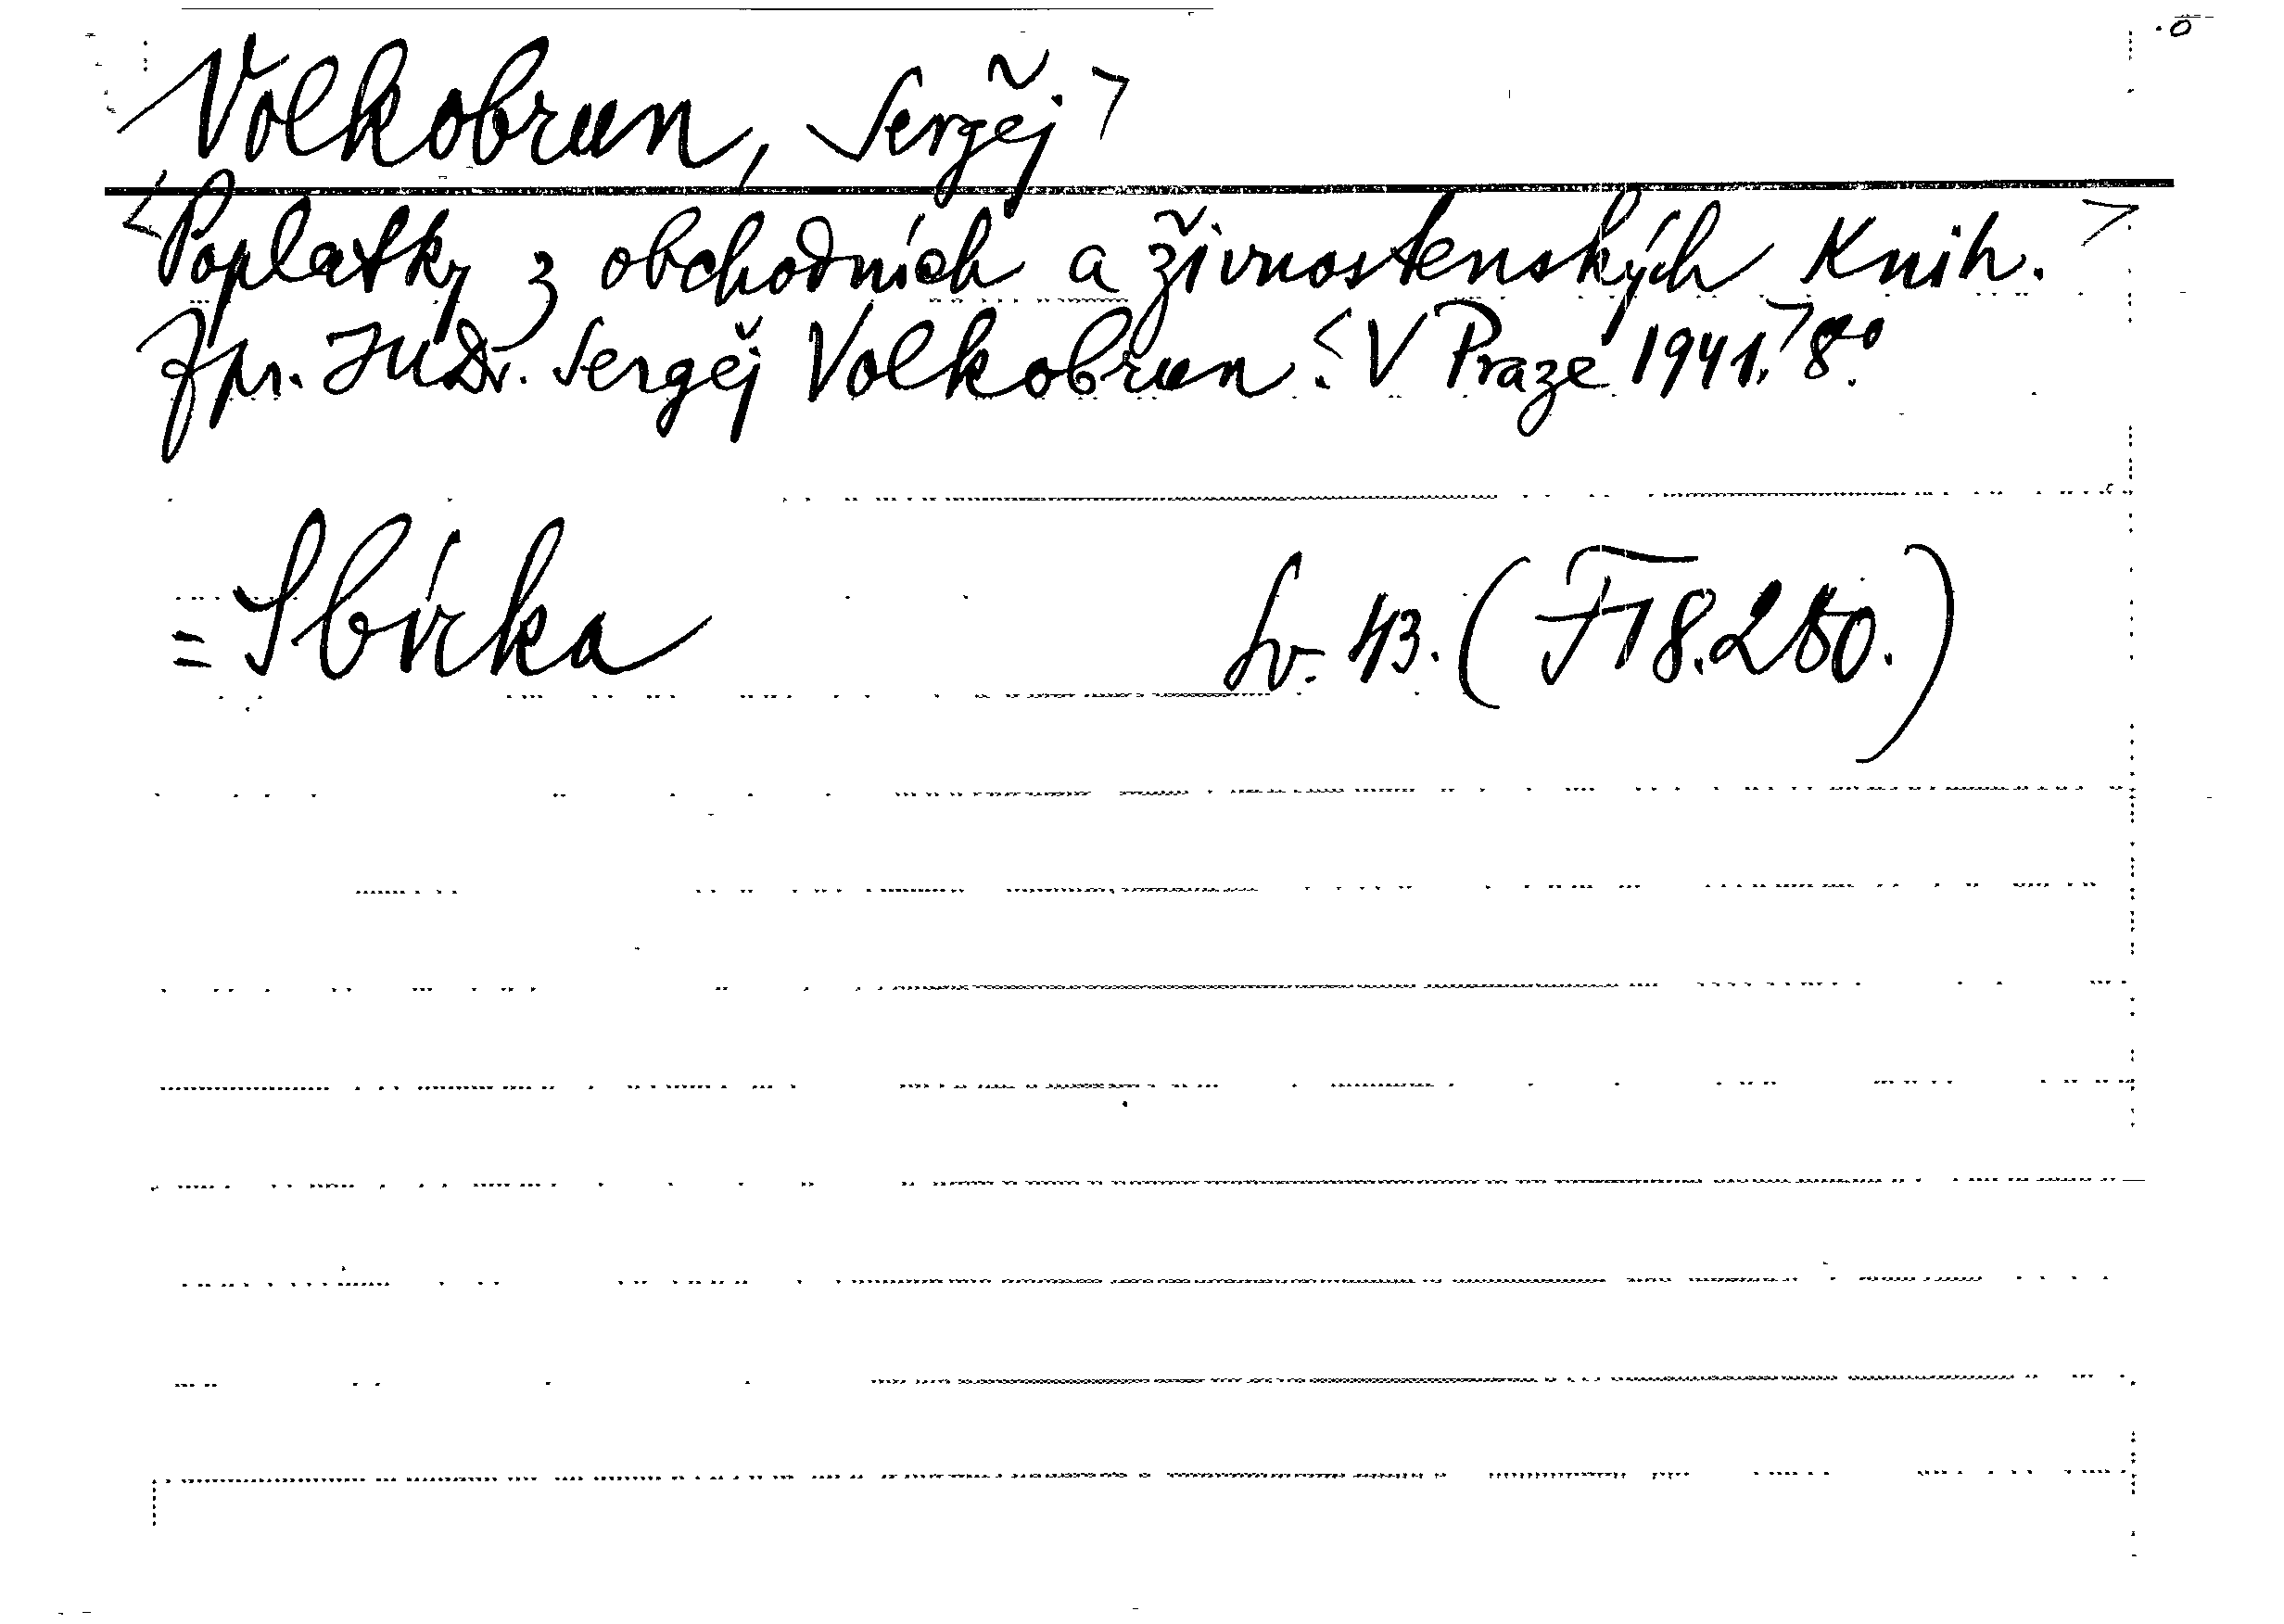 Volkobrun, Sergěj >
<Poplatky z obchodních a živnostenských Knih.>
Zpr. JUDr. Sergěj Volkobrun. <V Praze 1941.> 8°.
= Sbírka Sv. 43. (F 18.280.)